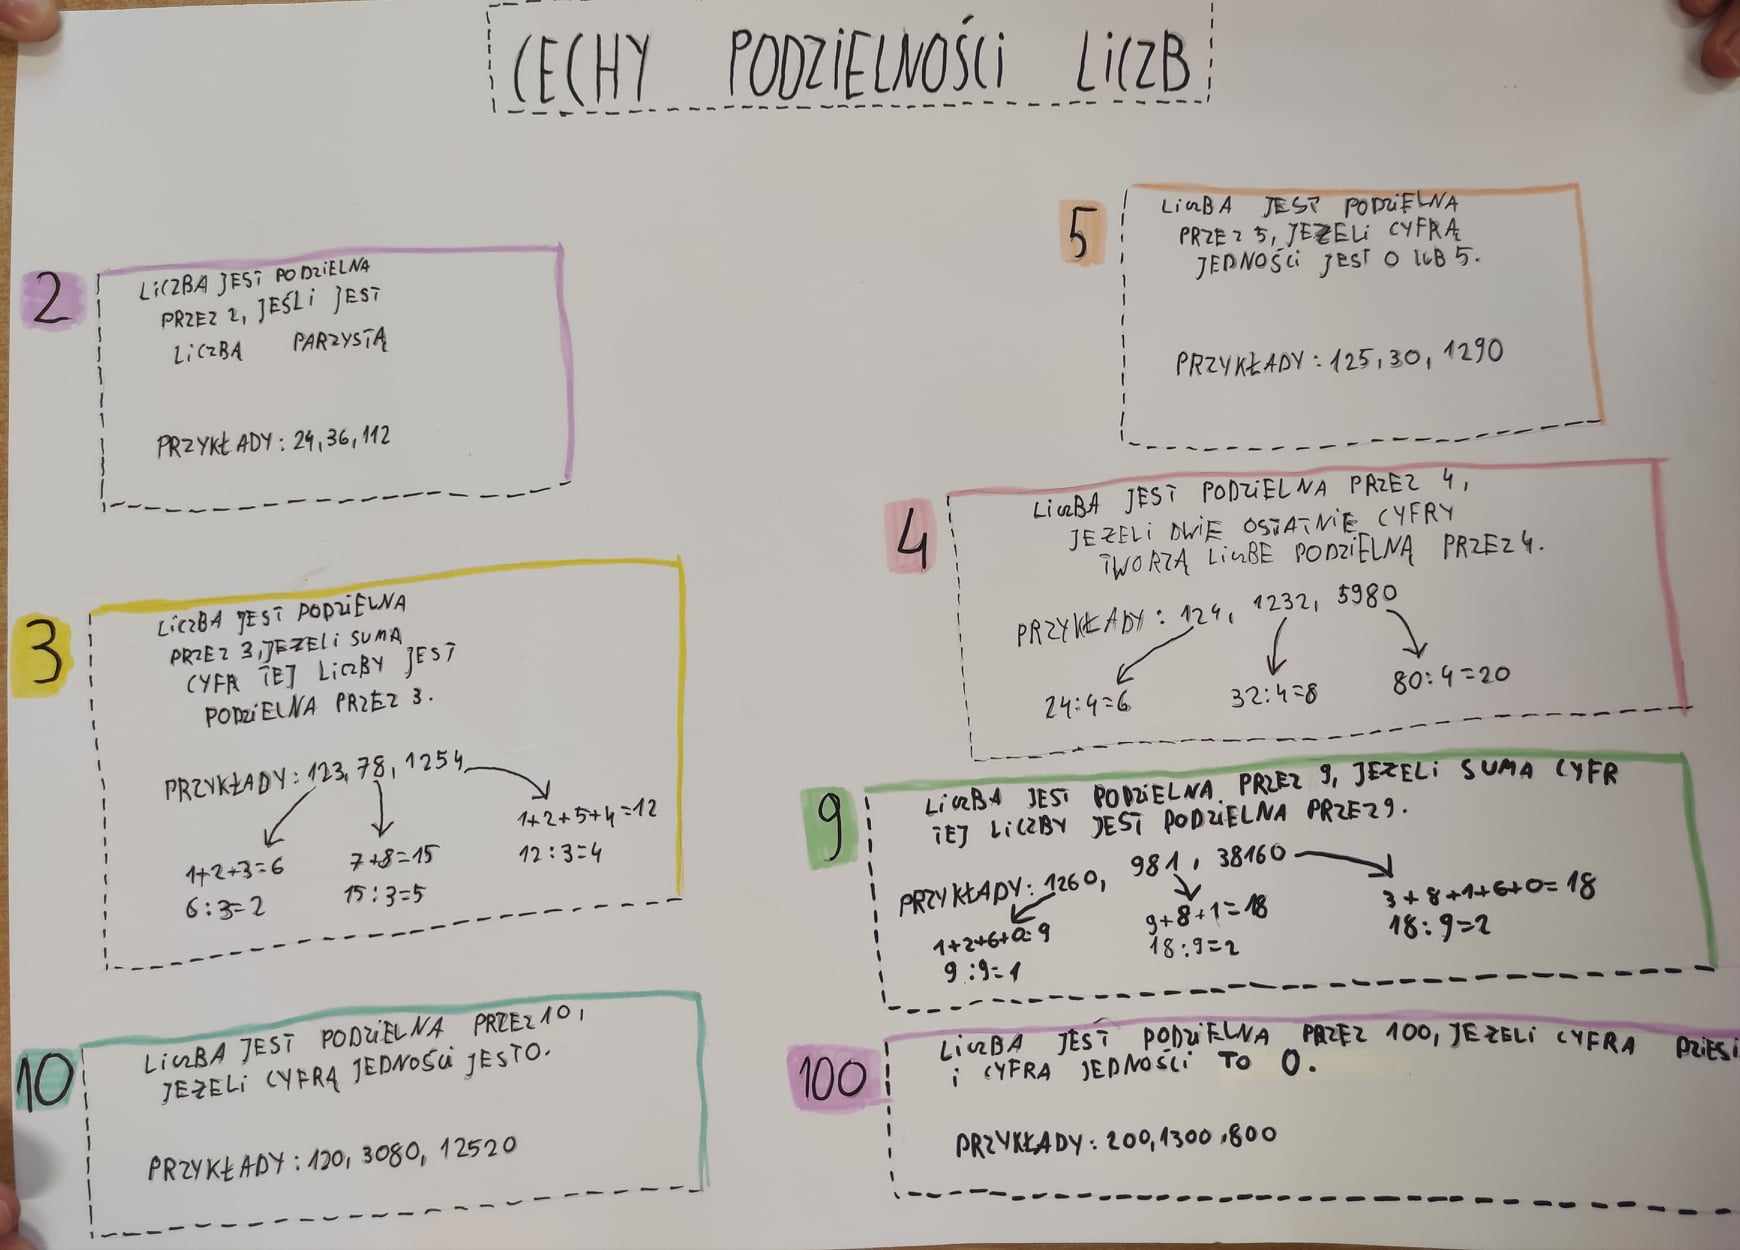 CECHY PODZIELNOŚCI LICZB
2
LICZBA JEST PODZIELNA
PRZEZ 2, JEŚLI JEST
LICZBA PARZYSTĄ
PRZYKŁADY: 24, 36, 112
3
LICZBA JEST PODZIELNA
PRZEZ 3, JEŻELI SUMA
CYFR TEJ LICZBY JEST
PODZIELNA PRZEZ 3.
PRZYKŁADY: 123, 78, 1254
1+2+3=6
6:3=2
7+8=15
15:3=5
1+2+5+4=12
12:3=4
10
LICZBA JEST PODZIELNA PRZEZ 10,
JEŻELI CYFRĄ JEDNOŚCI JEST 0.
PRZYKŁADY: 120, 3080, 12520
5
LICZBA JEST PODZIELNA
PRZEZ 5, JEŻELI CYFRĄ
JEDNOŚCI JEST 0 LUB 5.
PRZYKŁADY: 125, 30, 1290
4
LICZBA JEST PODZIELNA PRZEZ 4,
JEŻELI DWIE OSTATNIE CYFRY
TWORZĄ LICZBE PODZIELNĄ PRZEZ 4.
PRZYKŁADY: 124, 1232, 5980
24:4=6
32:4=8
80:4=20
9
LICZBA JEST PODZIELNA PRZEZ 9, JEŻELI SUMA CYFR
TEJ LICZBY JEST PODZIELNA PRZEZ 9.
PRZYKŁADY: 1260, 981, 38160
1+2+6+0=9
9:9=1
9+8+1=18
18:9=2
3+8+1+6+0=18
18:9=2
100
LICZBA JEST PODZIELNA PRZEZ 100, JEŻELI CYFRA DZIESI
I CYFRA JEDNOŚCI TO 0.
PRZYKŁADY: 200, 1300, 800